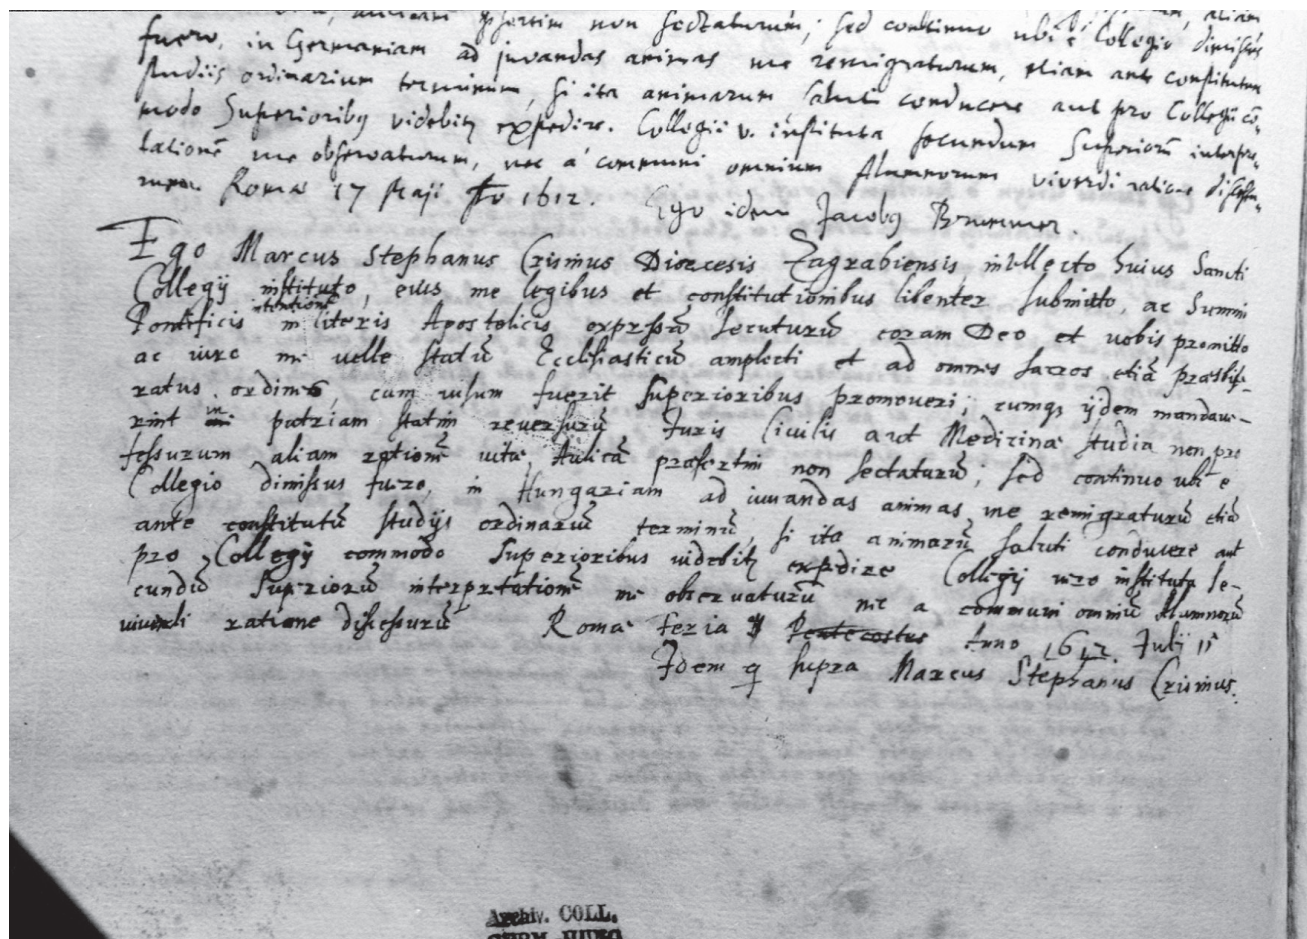 non sectaturum; sed continuo ubi è Collegio dimissus
fuero, in Germaniam ad juvandas animas me remigraturum, etiam ante constitutum
studiis ordinarium terminum, si ita animarum saluti conducere aut pro Collegii cō-
modo Superioribus videbitur expedire. Collegii v. instituta secundum Superiorū interpre-
tationē me observaturum, nec à communi omnium Alumnorum vivendi ratione discessu-
rum. Romae 17 Maji Ao 1612. Ego idem Jacobus
Ego Marcus Stephanus Crismus Dioecesis Zagrabiensis intellecto huius Sancti
Collegij instituto, eius me legibus et constitutionibus libenter submitto, ac Summi
Pontificis in literis Apostolicis expressā secuturū coram Deo et vobis promitto
ac iuro me velle statū Ecclesiasticū amplecti et ad omnes sacros etiā praesbite-
ratus ordines, cum visum fuerit Superioribus promoveri; cumq; ijdem mandave-
rint in patriam statim reversurū Iuris Civilis aut Medicinae studia non pro
fessurum aliam rationē vitae, Aulicā praesertim non sectaturū; sed continuo ubi e
Collegio dimissus fuero, in Hungariam ad iuvandas animas me remigraturū etiā
ante constitutū studijs ordinariū terminū, si ita animarū saluti conducere aut
pro Collegij commodo Superioribus videbitur expedire Collegij vero instituta se-
cundū Superiorū interpretationē me observaturū nec a communi omniū Alumnorū
vivendi ratione discessurū Romae feria Pentecostes Anno 1612. Julij 11
Idem q supra Marcus Stephanus Crismus.
Archiv. COLL.
GERM. HUNG